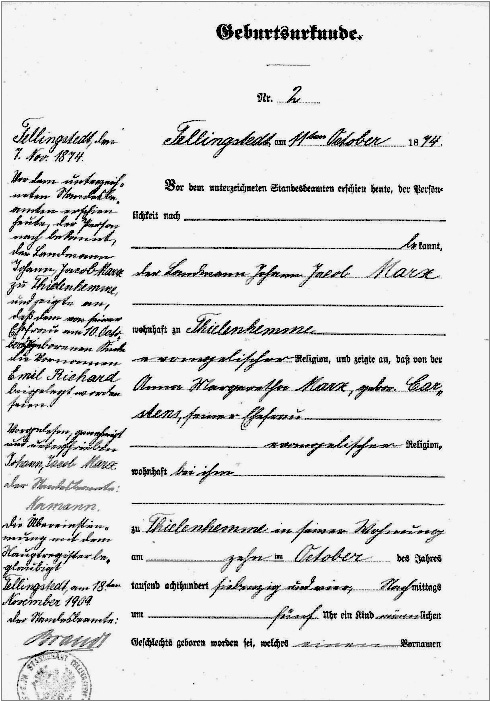 Geburtsurkunde.
Nr. 2
Tellingstedt, am 11ten October 1874.
Vor dem unterzeichneten Standesbeamten erschien heute, der Persön-
lichkeit nach
bekannt,
der Landmann Johann Jacob Marx
wohnhaft zu Thielenhemme
evangelischer Religion, und zeigte an, daß von der
Anna Margaretha Marx, gebor. Car-
stens, seiner Ehefrau
evangelischer Religion,
wohnhaft bei ihm
zu Thielenhemme in seiner Wohnung
am zehn ten October des Jahres
tausend achthundert siebenzig und vier, Nachmittags
um fünf Uhr ein Kind männlichen
Geschlechts geboren worden sei, welches einen Vornamen
Tellingstedt, den
7. Nov. 1874.
Vor dem unterzeich-
neten Standesbe-
amten erschien
heute, der Person
nach bekannt,
der Landmann
Johann Jacob Marx
zu Thielenhemme,
und zeigte an,
daß dem von seiner
Ehefrau am 10. Octo-
ber geborenen Kinde
die Vornamen
Emil Richard
beigelegt worden
seien.
Vorgelesen, genehmigt
und unterschrieben
Johann Jacob Marx.
Der Standesbeamte:
Normann.
Die Übereinstim-
mung mit dem
Hauptregister be-
glaubigt
Tellingstedt, am 18ten
November 1909
Der Standesbeamte:
Brandt